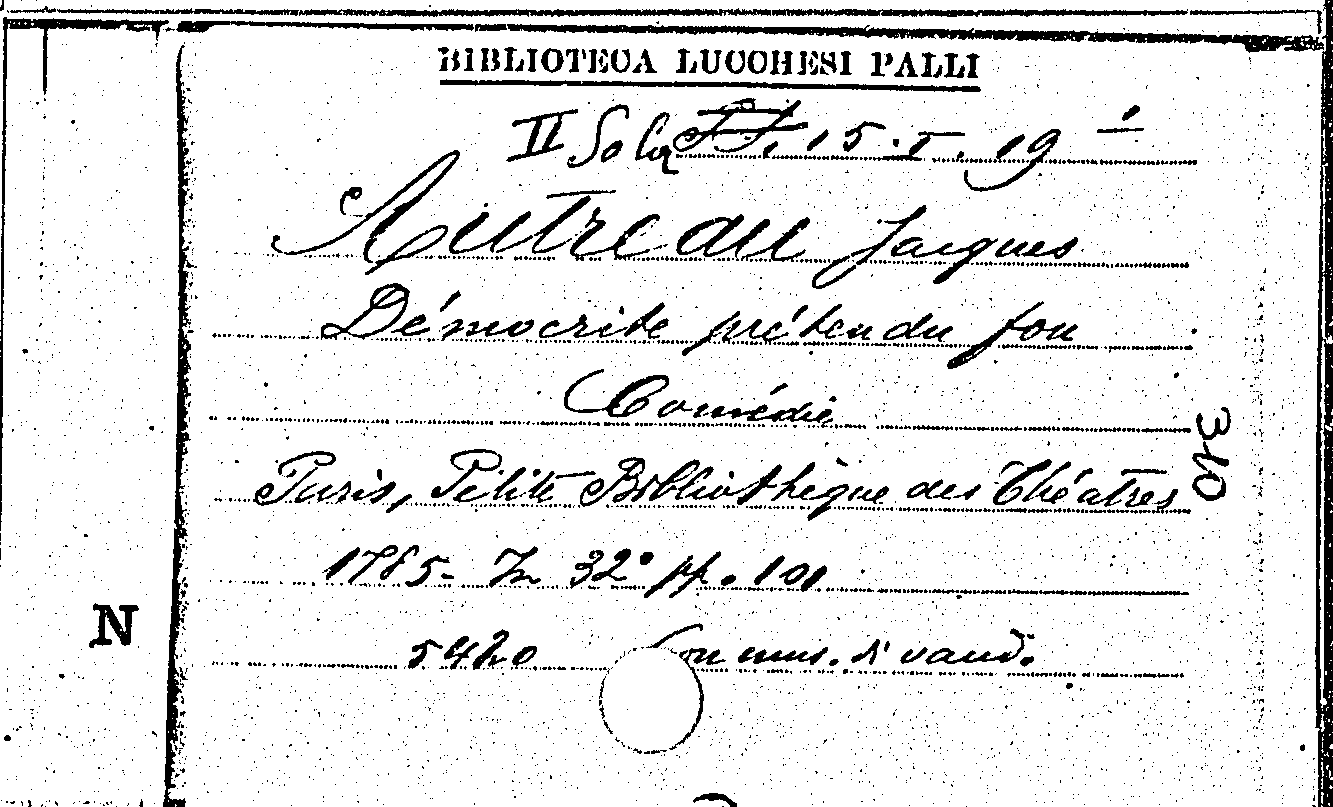 BIBLIOTECA LUCCHESI PALLI
II Sala 15. I. 19
Autreau Jacques
Démocrite prétendu fou
Comédie
Paris, Petite Bibliothèque des Théatres
1785- In 32° pp. 101
5420 Con mus. di vaud.
N
340